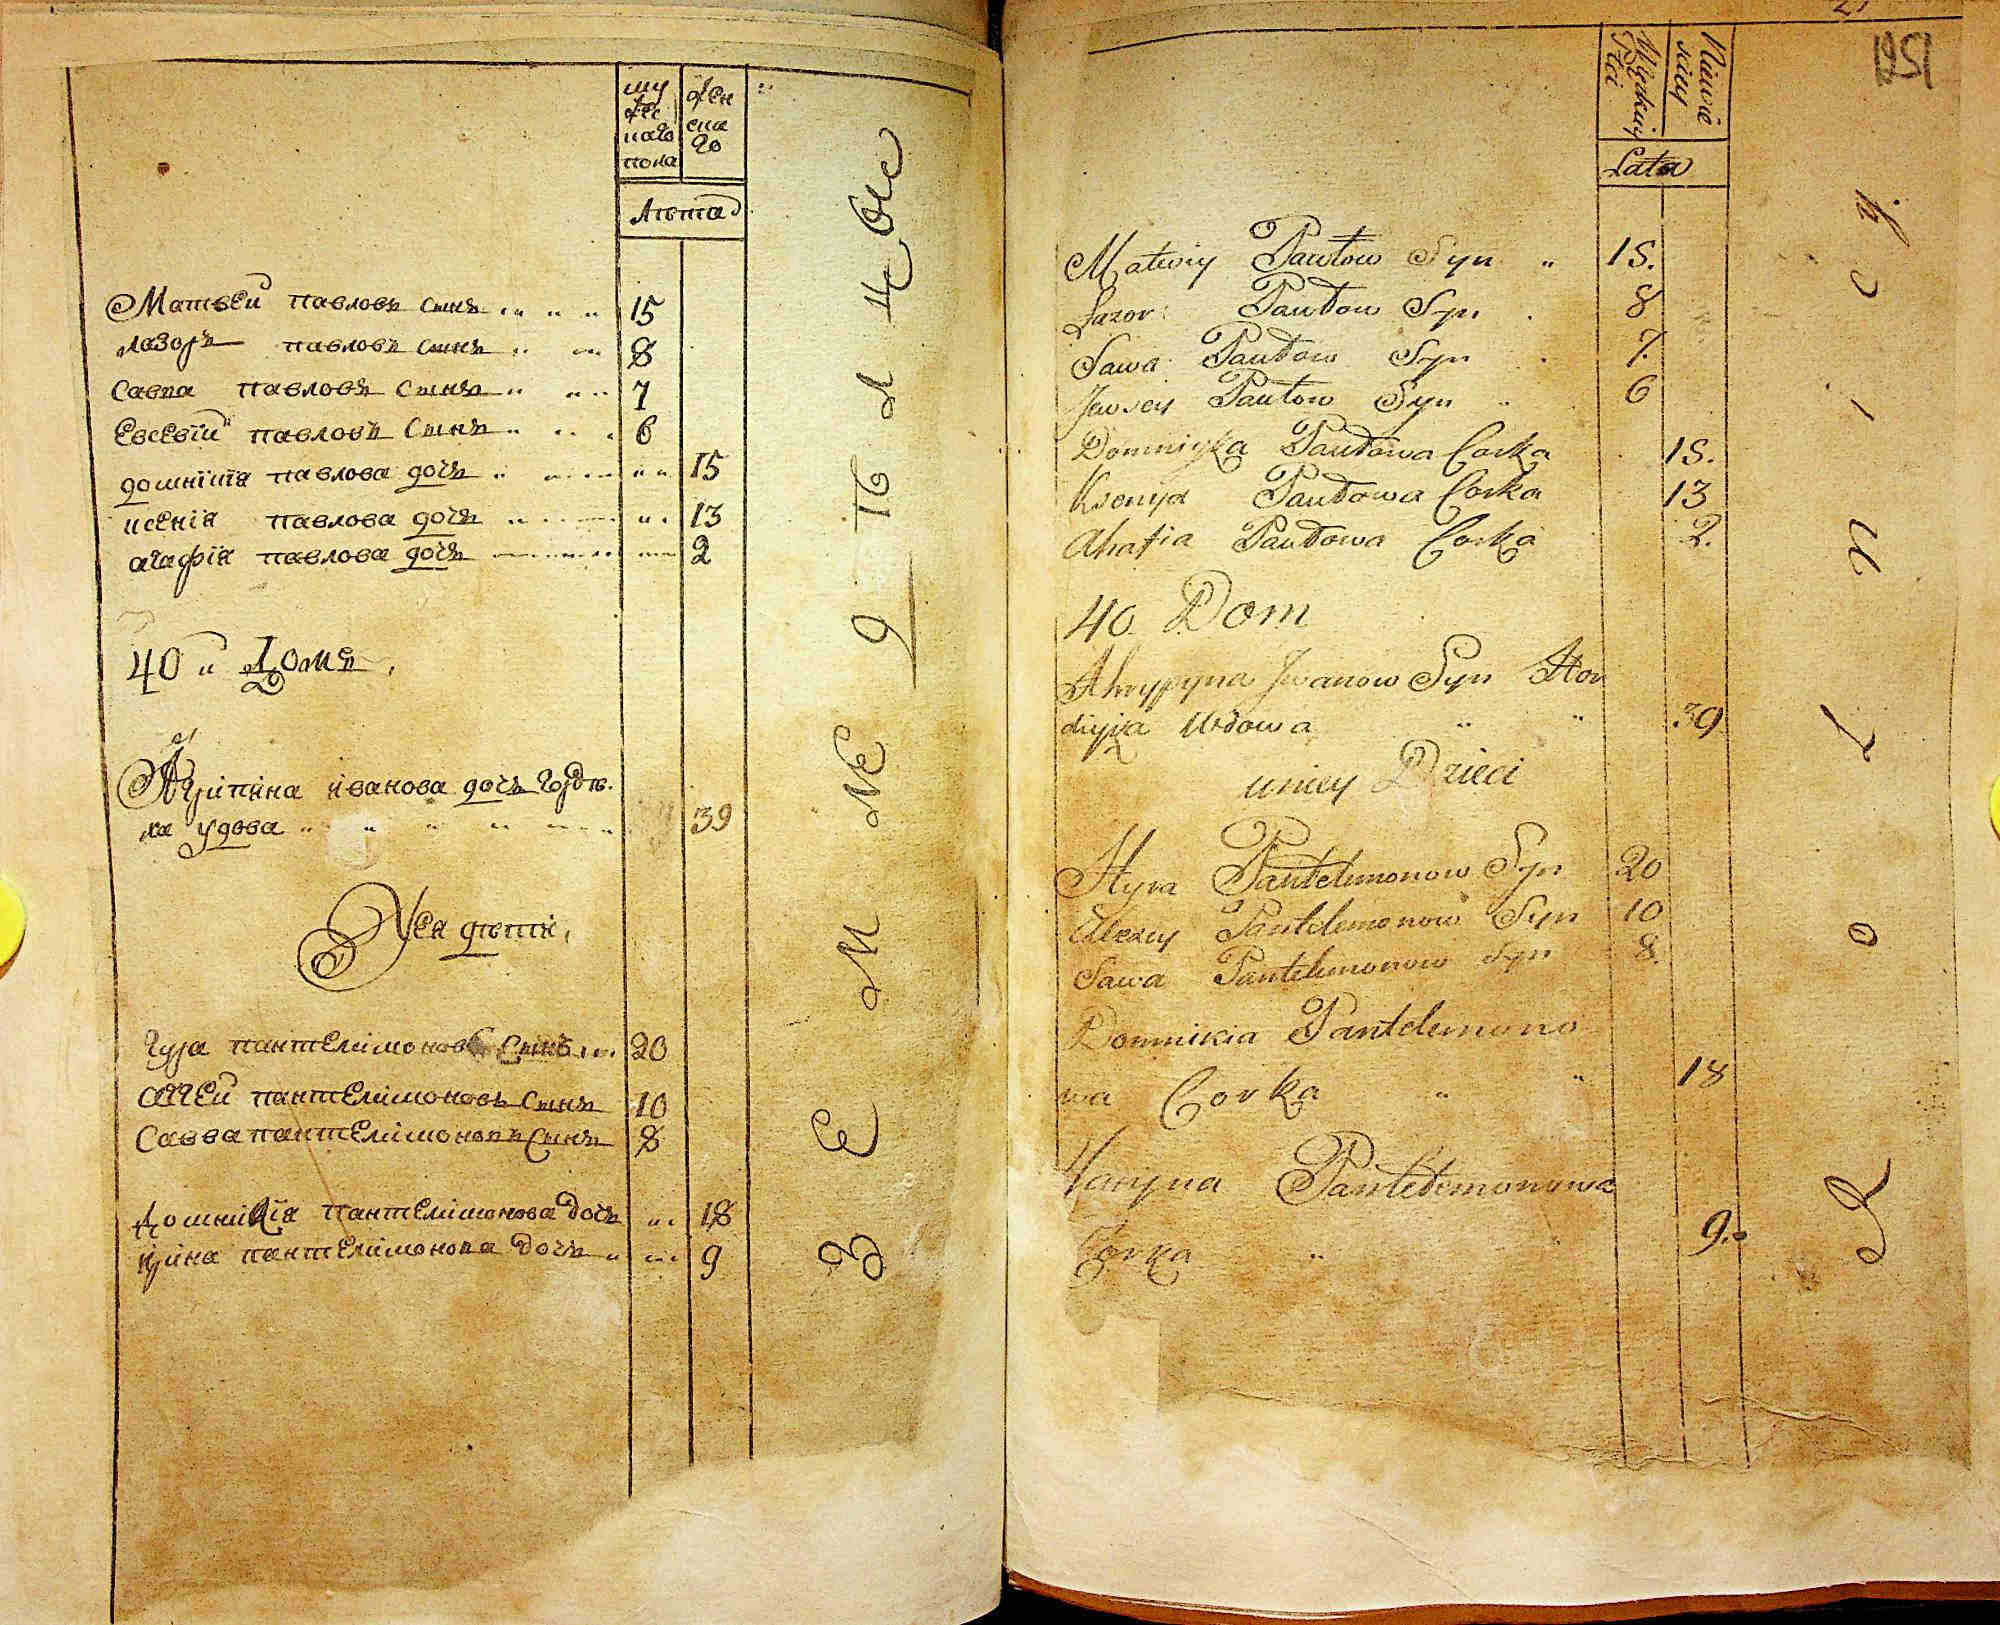 му
жес
каго
пола
жен
ска
го
Лѣта
Матвей павловъ сынъ 15
лазоръ павловъ сынъ 8
Савва павловъ сынъ 7
Евсевїй павловъ сынъ 6
павлова дочъ 15
ксенія павлова дочъ 13
агафія павлова дочъ 2
40 й Домъ
Агріпіна іванова дочъ гордѣ
ка удова 39
У нея дѣти
Гура пантелімоновъ сынъ 20
пантелімоновъ сынъ 10
Савва пантелімоновъ сынъ 8
Домнікія пантелімонова дочъ 18
Іріна пантелімонова дочъ 9
ЗЕМЛЕ
ДѢЛ
1251
Męzkiey
Płci
Niewie
sciey
Lata
Matwiy Pawłow Syn 15.
Łazor Pawłow Syn 8
Sawa Pawłow Syn 7.
Jewsey Pawłow Syn 6
Domnicyia Pawłowa Corka 15.
Ksenyia Pawłowa Corka 13
Ahafia Pawłowa Corka 2.
40 Dom
Ahrypyna Jwanow Syn Hor
diyka Wdowa 39
u niey Dzieci
Hyra Pantelimonow Syn 20
Alexiy Pantelemonow Syn 10
Sawa Pantelimonow Syn 8.
Domnikia Pantelemono
wa Corka 18
Pantelemonowa
Corka 9.
R o l n i c y